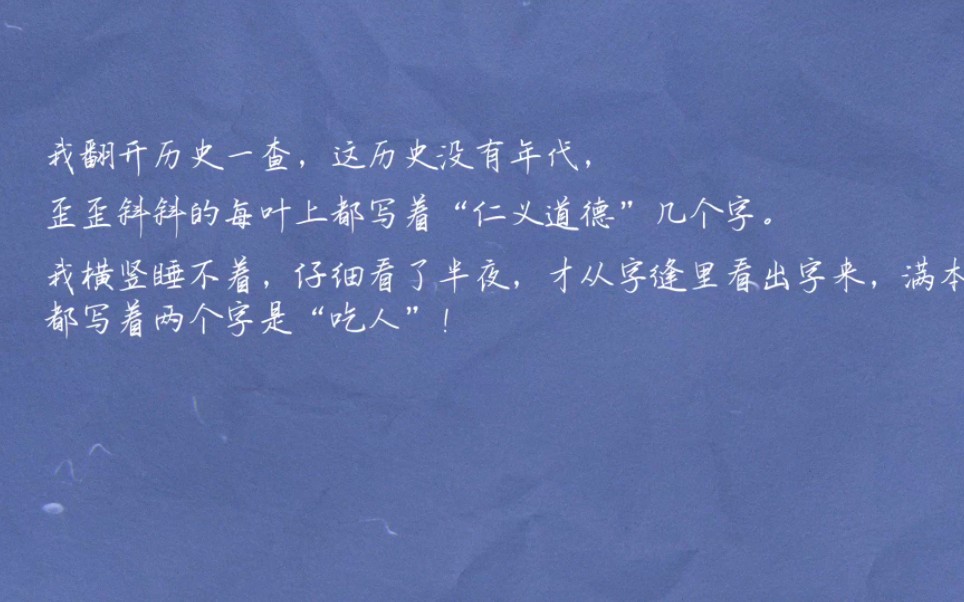 我翻开历史一查，这历史没有年代，
歪歪斜斜的每叶上都写着“仁义道德”几个字。
我横竖睡不着，仔细看了半夜，才从字缝里看出字来，满本
都写着两个字是“吃人”！